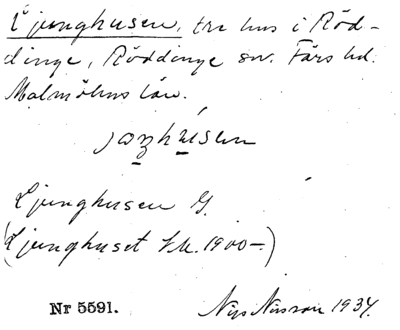 Ljunghusen, tre hus i Röd-
dinge, Röddinge sn. Färs hd.
Malmöhus län.
Ljunghusen G.
(Ljunghuset Sk. 1900-)
Nr 5591. Nils Nilsson 1934.